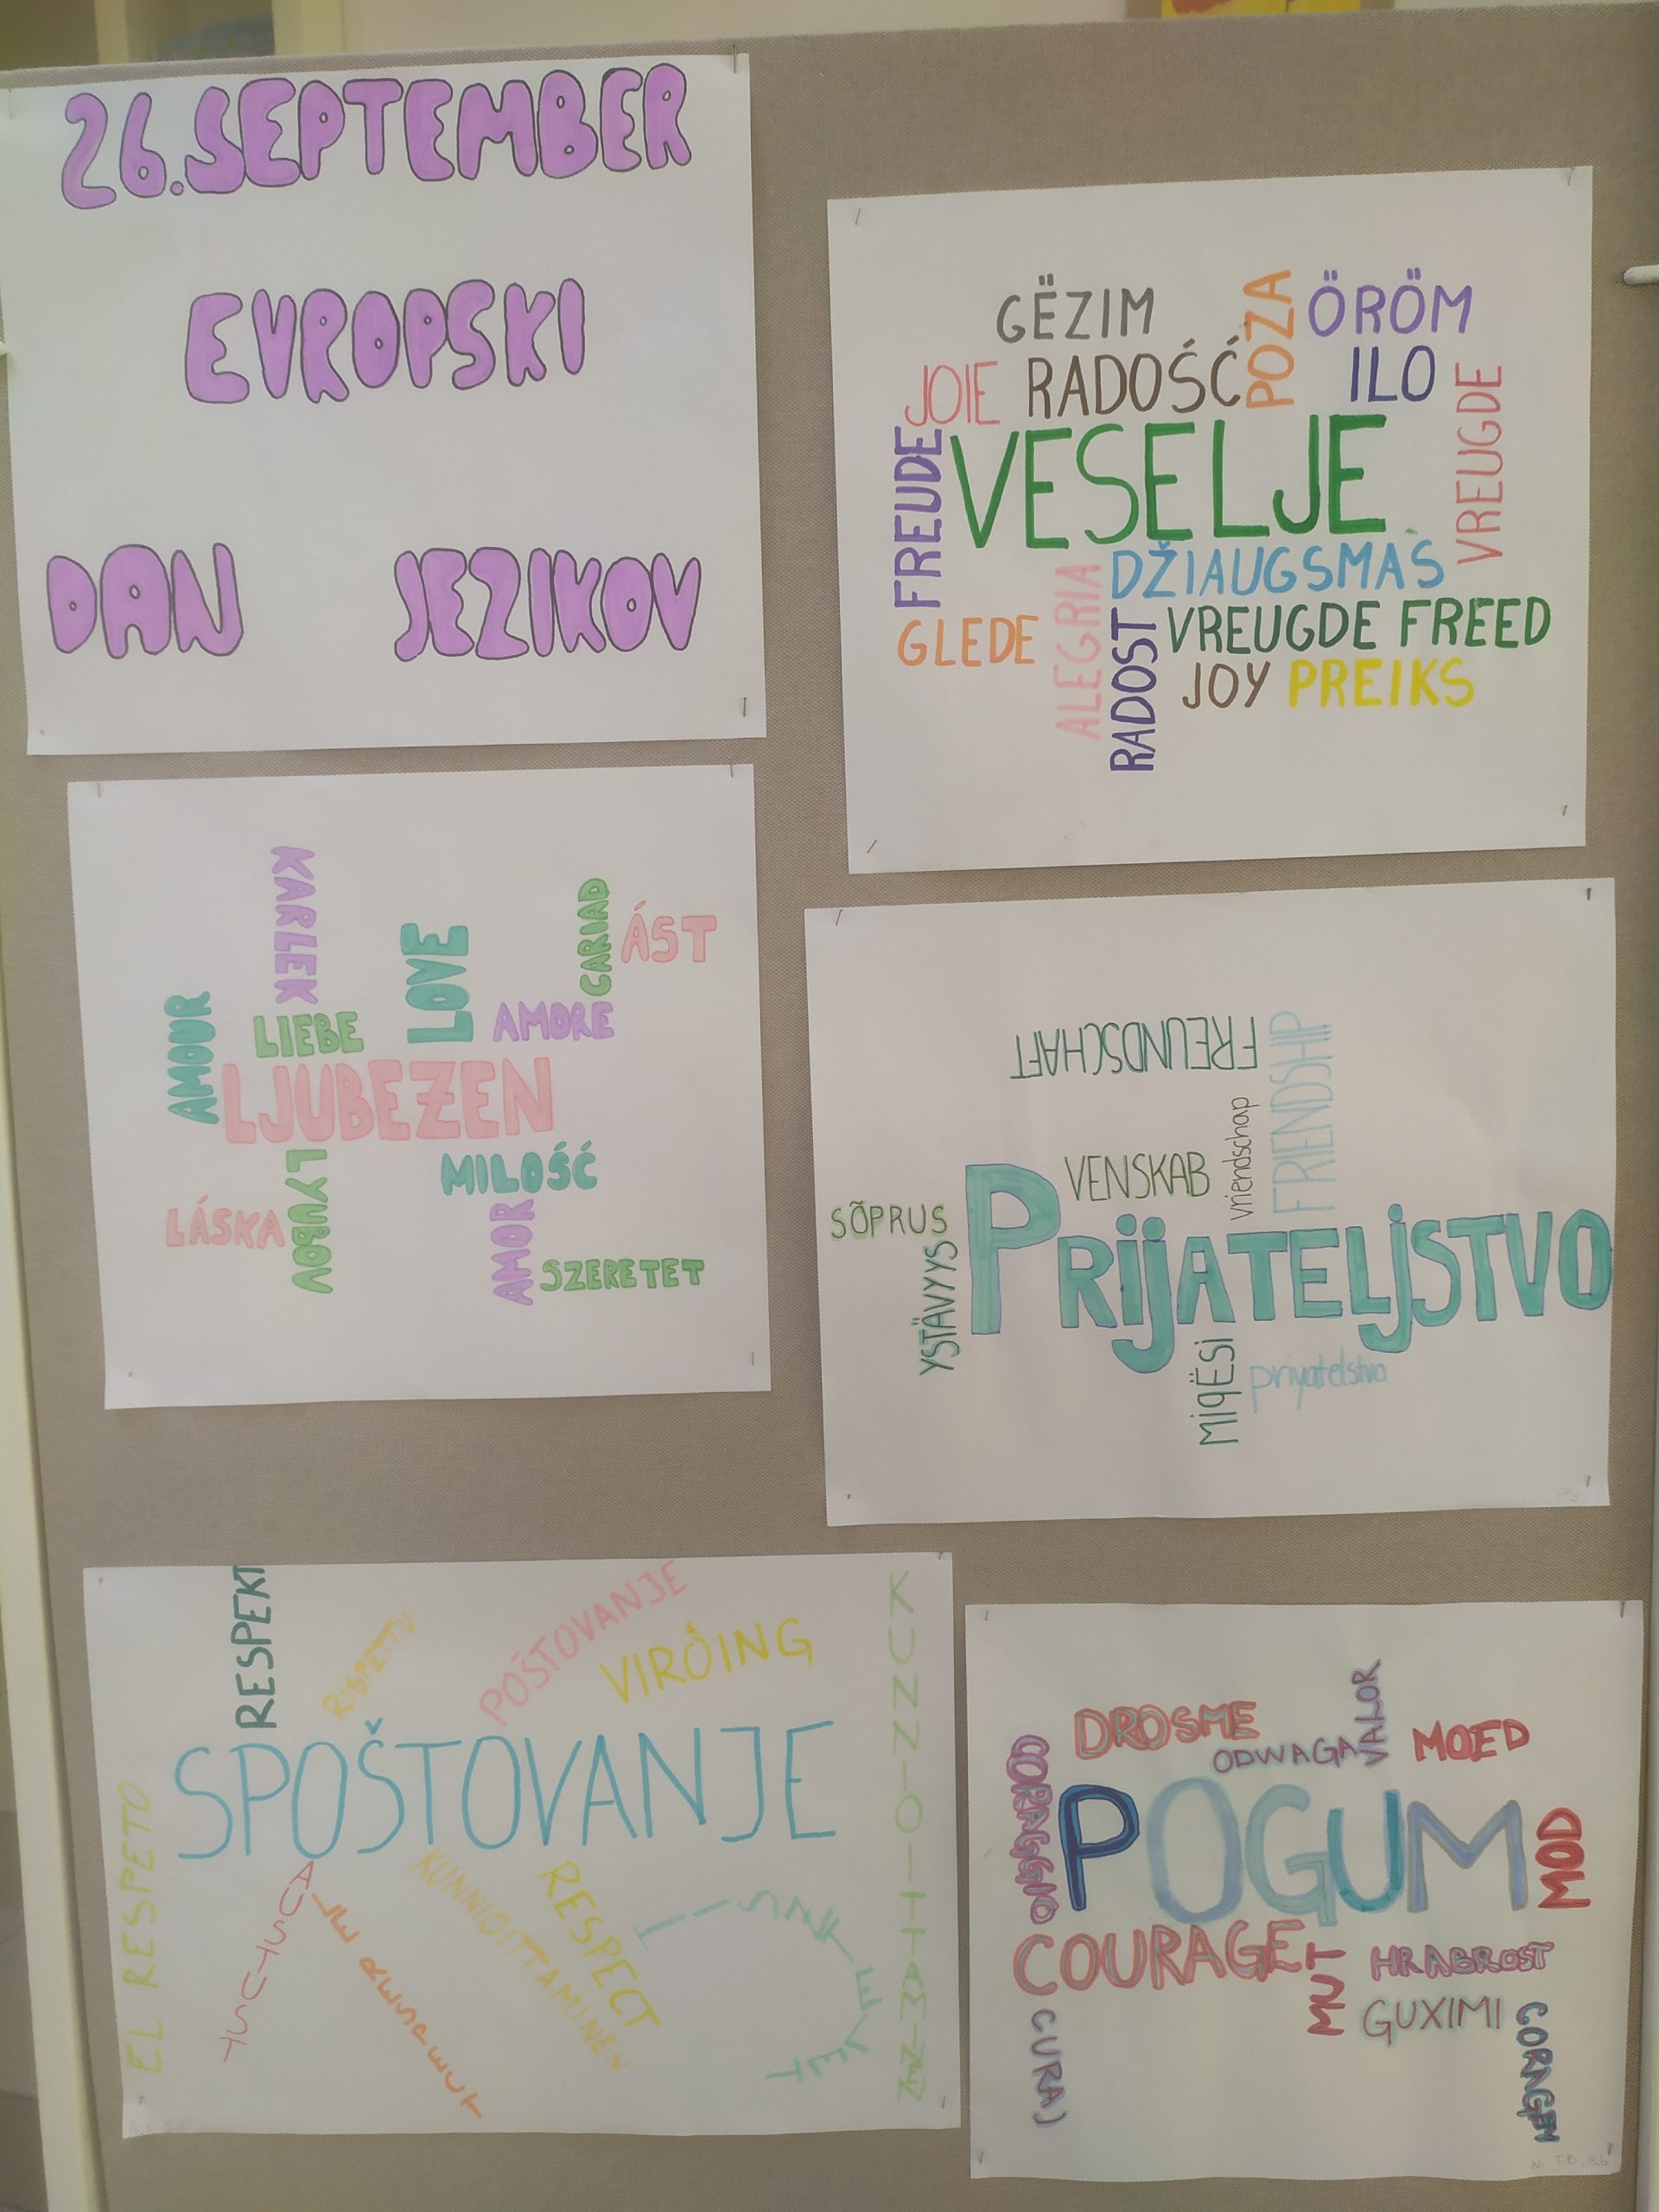 26.SEPTEMBER
EVROPSKI
DAN JEZIKOV
GËZIM
POZA
ÖRÖM
JOIE
RADOŚĆ
ILO
VREUGDE
FREUDE
VESELJE
DŽIAUGSMAS
GLEDE
ALEGRIA
RADOST
VREUGDE FREED
JOY
PREIKS
KARLEK
LOVE
CARIAD
ÁST
AMOUR
LIEBE
AMORE
LJUBEZEN
LYUBOV
MILOŚĆ
LÁSKA
AMOR
SZERETET
FREUNDSCHAFT
FRIENDSHIP
VENSKAB
vriendschap
SÕPRUS
YSTÄVYYS
PRIJATELJSTVO
MIQËSI
priyatelstvo
RESPEKT
RISPETTU
POŠTOVANJE
VIRÓING
KUNNIOITTAMINEN
SPOŠTOVANJE
EL RESPETO
AUSTUST
KUNNIOITTAMINEN
RESPECT
TISZTELET
DROSME
ODWAGA
VALOR
MOED
CORAGGIO
POGUM
MOD
COURAGE
MUT
HRABROST
GUXIMI
CURAJ